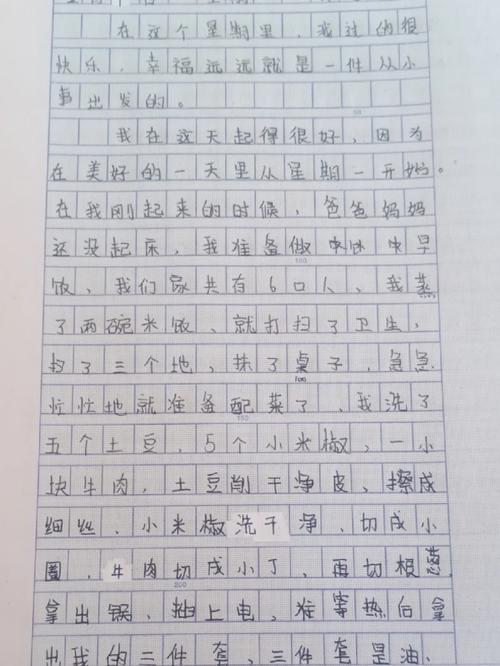 在这个星期里，我过的很
快乐，幸福远远就是一件从小
事出发的。
我在这天起得很好，因为
在美好的一天里从星期一开始。
在我刚起来的时候，爸爸妈妈
还没起床，我准备做快快早
饭、我们家共有6口人、我蒸
了两碗米饭、就打扫了卫生，
扫了三个地，抹了桌子，急急
忙忙地就准备配菜了，我洗了
五个土豆，5个小米椒，一小
块牛肉，土豆削干净皮、擦成
细丝、小米椒洗干净、切成小
圈，牛肉切成小丁，再切根葱
拿出锅，插上电，准等热后拿
出我的三件套，三件套是油、